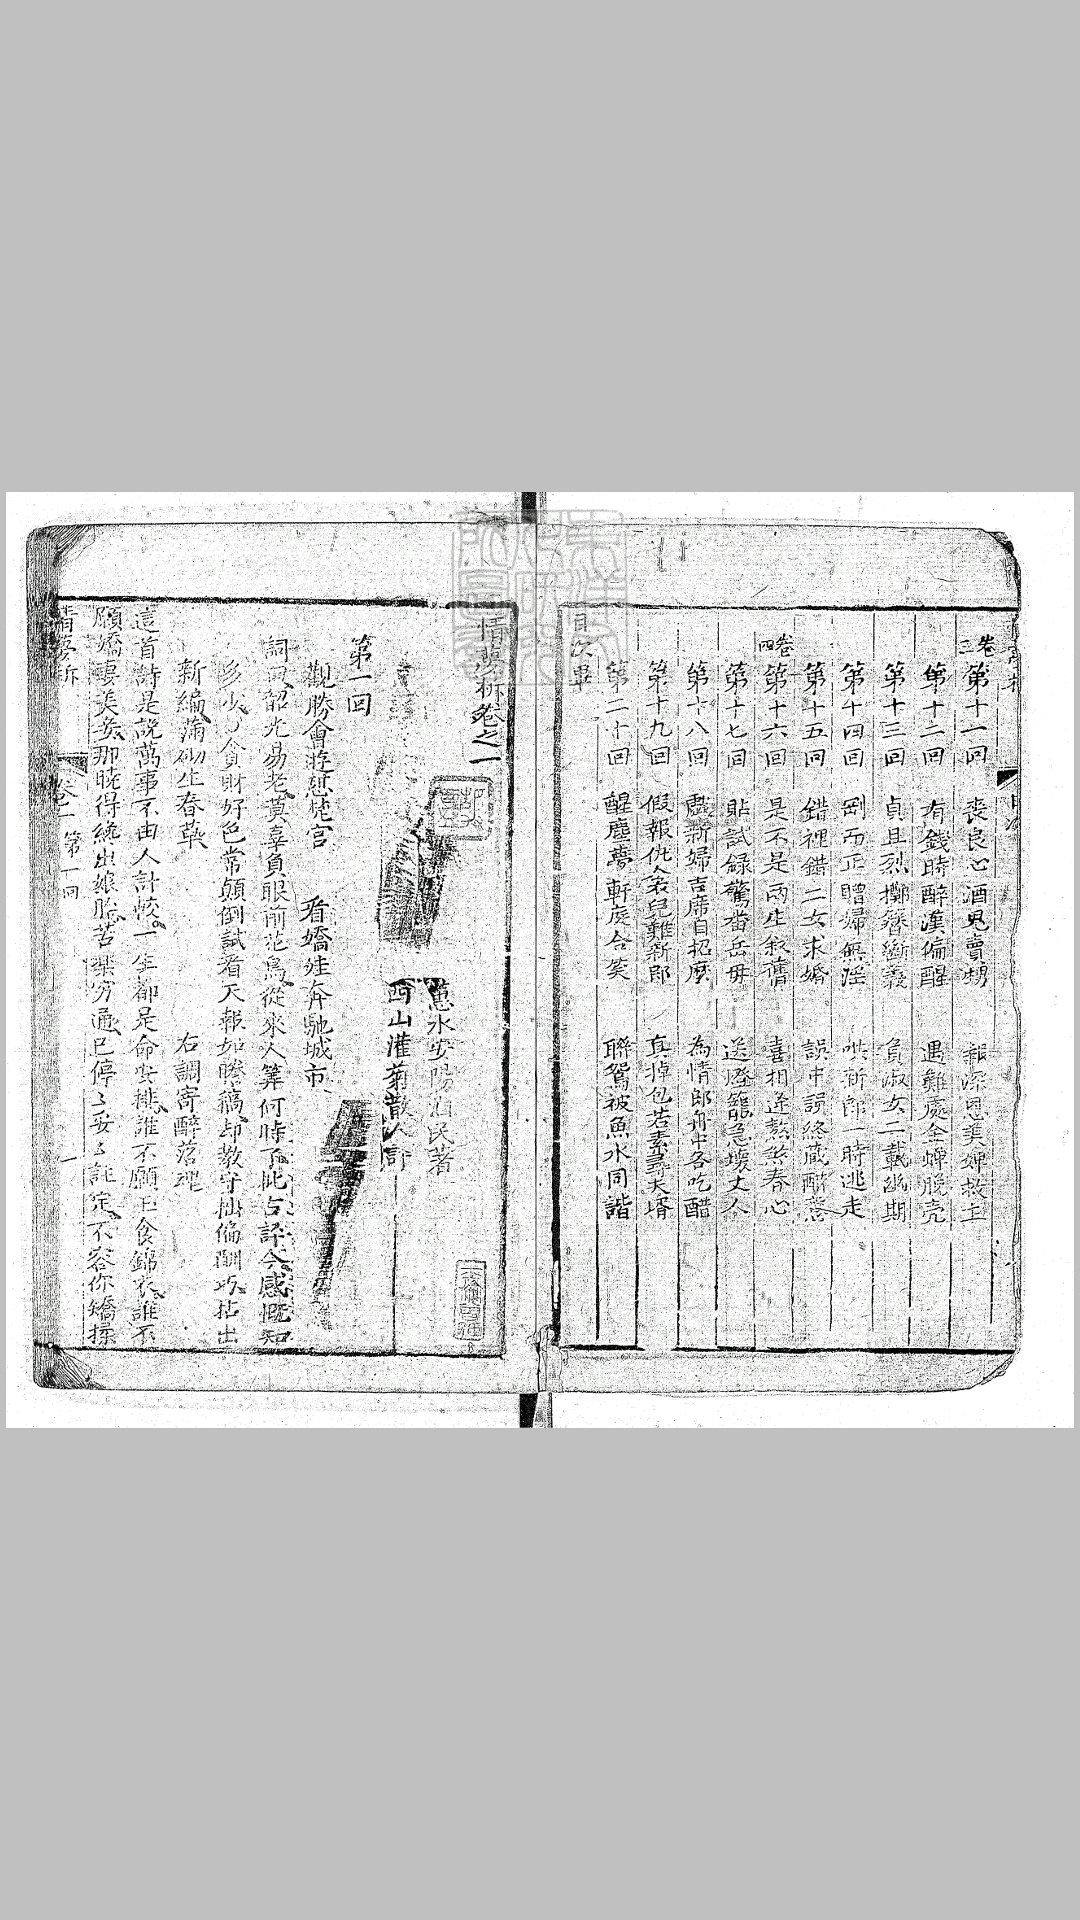 卷三 第十一回 喪良心酒鬼賣甥 報深恩美婢救主
第十二回 有錢時醉漢偏醒 遇難處金蟬脫壳
第十三回 貞且烈擲簪斷義 負淑女二載幽期
第十四回 剛而正贈婦無淫 哄新郎一時逃走
第十五回 錯裡錯二女求婚 誤中誤終藏醋意
卷四 第十六回 是不是兩生叙舊 喜相逢熬煞春心
第十七回 貼試録驚番岳母 送燈籠急壞丈人
第十八回 戲新婦吉席自招麼 為情郎舟中各吃醋
第十九回 假報仇衾兒難新郎 真掉包若素壽夫壻
第二十回 醒塵夢軒庭合笑 聯鴛被魚水同諧
目次畢
情夢柝卷之一
蕙水安陽酒民著
西山灌菊散人評
第一回
觀勝會遊憩梵宮 看嬌娃奔馳城市
詞曰韶光易老莫辜負眼前花鳥從來人筭何時了批古評今感慨知
多少貪財好色常顛倒試看天報如謄稿却教守拙偏酬巧拈出
新編滿砌生春草 右調寄醉落魄
這首詩是說萬事不由人計較一生都是命安排誰不願玉食錦衣誰不
願嬌妻美妾那曉得纔出娘胎苦樂窮通已停停妥妥註定不容你矯揉
情夢柝 卷一 第一回 一